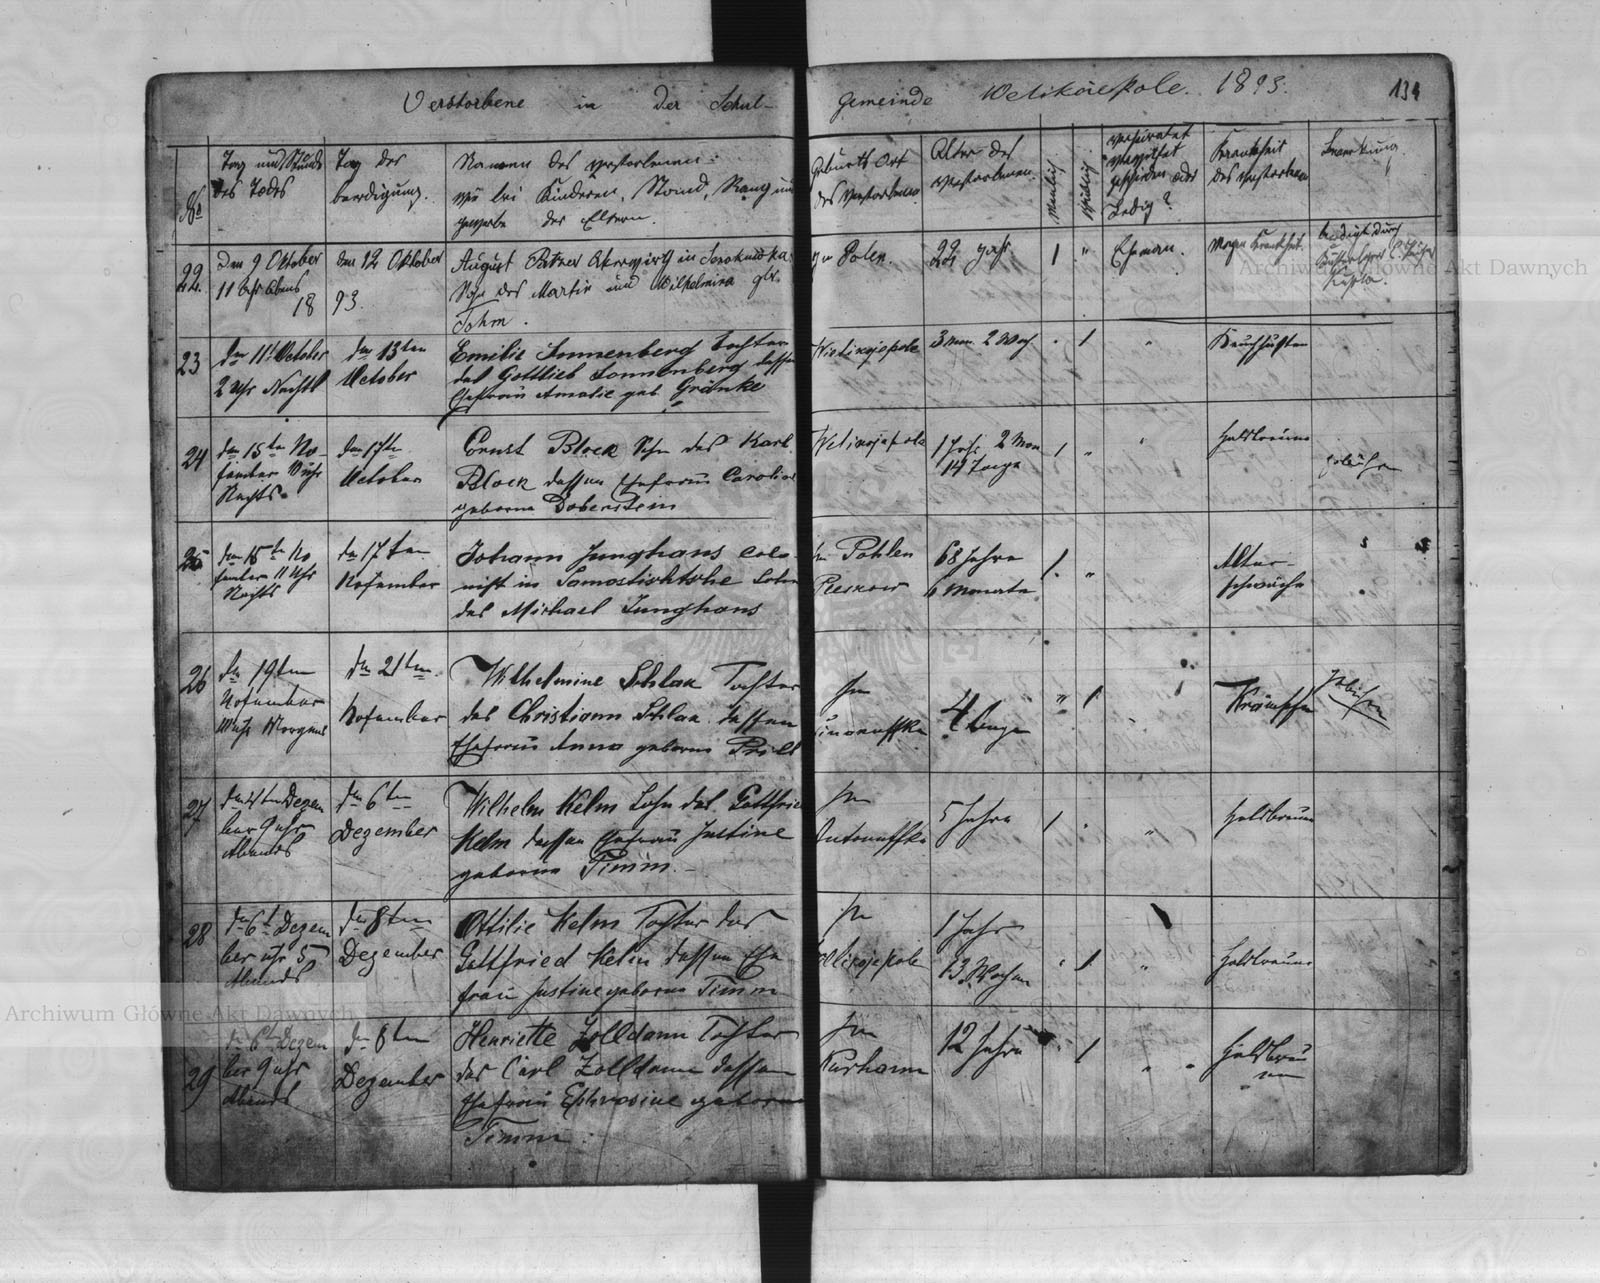 Verstorbene in der Schul-
gemeinde Welikoiepole. 1893.
134
No
Tag und Stunde
des Todes
Tag der
beerdigung.
Namen des verstorbenen:
wie bei Kindern, Stand, Rang und
gewerbe der Eltern.
Geburts Ort
des verstorbenen
Alter des
verstorbenen.
Männlich
Weiblich
verheiratet
verwitwet
geschieden oder
Ledig?
Krankheit
des verstorbenen
Bemerkung
22.
Den 9 Oktober
11 Uhr Abends
1893.
den 12 Oktober
August in
Sohn des Martin und Wilhelmina geb.
Tohm.
in Polen.
22 Jahr
1 "
Eheman.
Magen Krankheit.
beerdigt durch
23
den 11t October
2 Uhr Nachts
den 13ten
October
Emilie Sonnenberg Tochter
des Gottlieb Sonnenberg dessen
Ehefrau Amalie geb Gränke
Welikojepole
3 Mon. 2 Woch
. 1
"
Keuchhusten
24
den 15ten No-
fember Uhr
Nachts
den 17ten
October
Ernst Block Sohn des Karl
Block dessen Ehefrau Caroline
geborne Doberstein
Welikojepole
1 Jahr 2 Mon
14 Tage
1 "
"
Halsbräune
25
den 15ten No
fember 11 Uhr
Nachts
den 17ten
Nofember
Johann Junghans Colo
nist in Samostischtsche Sohn
des Michael Junghans
in Pohlen
68 Jahre
6 Monate
1. "
Alter-
schwäche
26
den 19ten
Nofember
Uhr Morgens
den 21ten
Nofember
Wilhelmine Schlak Tochter
des Christian Schlak dessen
Ehefrau Anna geborne Prill
In
4 Tage
" 1
Krämpfe
27
den 4ten Dezem
ber 9 uhr
Abends
den 6ten
Dezember
Wilhelm Kelm Sohn des Gottfried
Kelm dessen Ehefrau Justine
geborne Timm.
In
Antonuffka
5 Jahre
1 .
"
Halsbräune
28
den 6t Dezem
ber uhr 5
Abends
den 8ten
Dezember
Ottilie Kelm Tochter des
Gottfried Kelm dessen Ehe
frau Justine geborne Timm
In
Welikojepole
1 Jahr
13 Wochen
. 1
"
Halsbräune
29
den 6ten Dezem
ber 9 uhr
Abends
den 8ten
Dezember
Henriette Zolldann Tochter
des Carl Zolldann dessen
Ehefrau Ephrosine geborne
Timm.
In
12 Jahre
1
" "
Halsbräu
ne
Archiwum Główne Akt Dawnych
Archiwum Główne Akt Dawnych